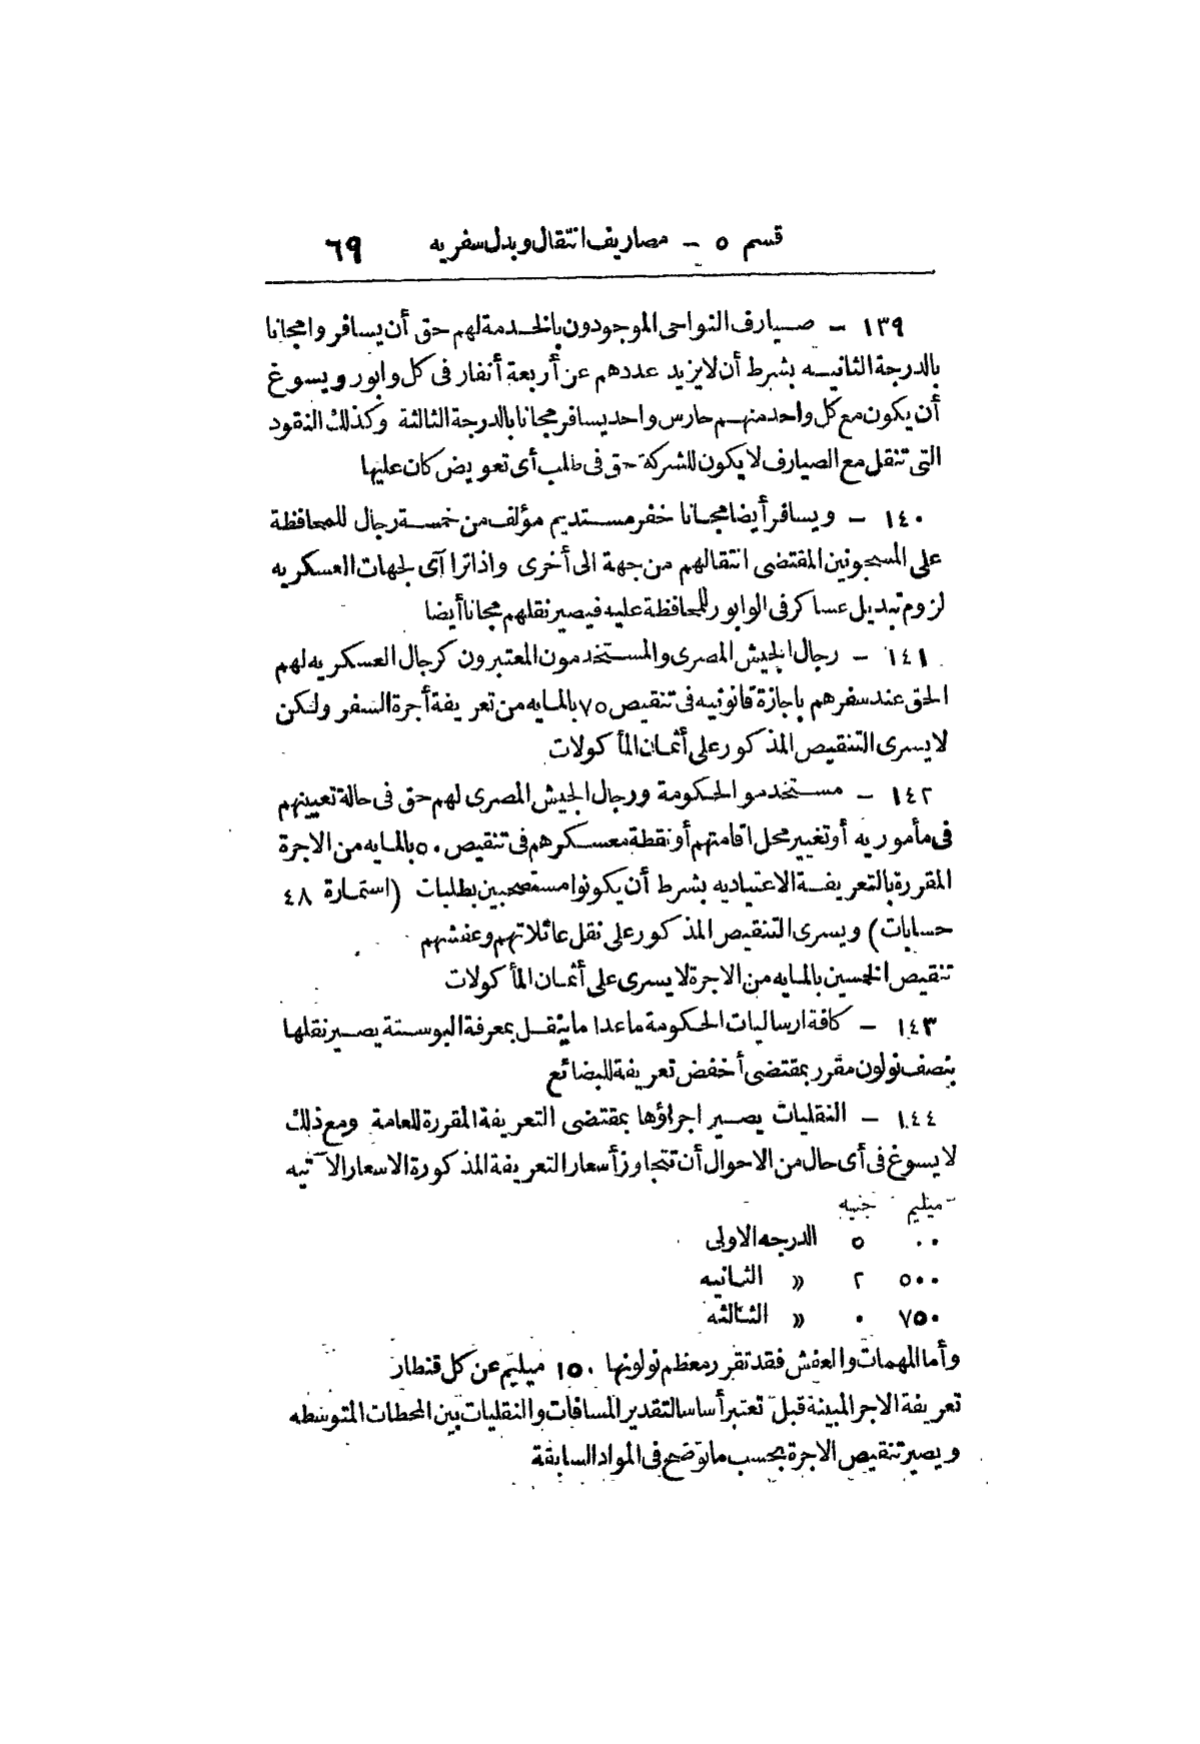 قسم ٥ – مصاريف انتقال وبدل سفريه ٦٩
١٣٩ – صيارف النواحى الموجودون بالخدمة لهم حق أن يسافروا مجانا
بالدرجة الثانيه بشرط أن لا يزيد عددهم عن أربعة أنفار فى كل وابور ويسوغ
أن يكون مع كل واحد منهم حارس واحد يسافر مجانا بالدرجة الثالثة وكذلك النقود
التى تنقل مع الصيارف لا يكون للشركة حق فى طلب أى تعويض كان عليها
١٤٠ – ويسافر أيضا مجانا خفر مستديم مؤلف من خمسة رجال للمحافظة
على المسجونين المقتضى انتقالهم من جهة الى أخرى واذا تراآى لجهات العسكريه
لزوم تبديل عساكر فى الوابور للمحافظة عليه فيصير نقلهم مجانا أيضا
١٤١ – رجال الجيش المصرى والمستخدمون المعتبرون كرجال العسكريه لهم
الحق عند سفرهم باجازة قانونيه فى تنقيص ٧٥ بالمايه من تعريفة أجرة السفر ولكن
لا يسرى التنقيص المذكور على أثمان المأكولات
١٤٢ – مستخدمو الحكومة ورجال الجيش المصرى لهم حق فى حالة تعيينهم
فى مأموريه أو تغيير محل اقامتهم أو نقطة معسكرهم فى تنقيص ٥٠ بالمايه من الاجرة
المقررة بالتعريفة الاعتياديه بشرط أن يكونوا مستصحبين بطلبات (استمارة ٤٨
حسابات) ويسرى التنقيص المذكور على نقل عائلاتهم وعفشهم
تنقيص الخمسين بالمايه من الاجرة لا يسرى على أثمان المأكولات
١٤٣ – كافة ارساليات الحكومة ماعدا ما ينقل بمعرفة البوستة يصير نقلها
بنصف نولون مقرر بمقتضى أخفض تعريفة للبضائع
١٤٤ – النقليات يصير اجراؤها بمقتضى التعريفة المقررة للعامة ومع ذلك
لا يسوغ فى أى حال من الاحوال أن تتجاوز أسعار التعريفة المذكورة الاسعار الآتيه
مليم جنيه
٠٠ ٥ الدرجه الاولى
٥٠٠ ٢ » الثانيه
٧٥٠ ٠ » الثالثه
وأما المهمات والعفش فقد تقرر معظم نولونها ١٥٠ ميليم عن كل قنطار
تعريفة الاجر المبينة قبل تعتبر أساسا لتقدير المسافات والنقليات بين المحطات المتوسطه
ويصير تنقيص الاجرة بحسب ما توضح فى المواد السابقة